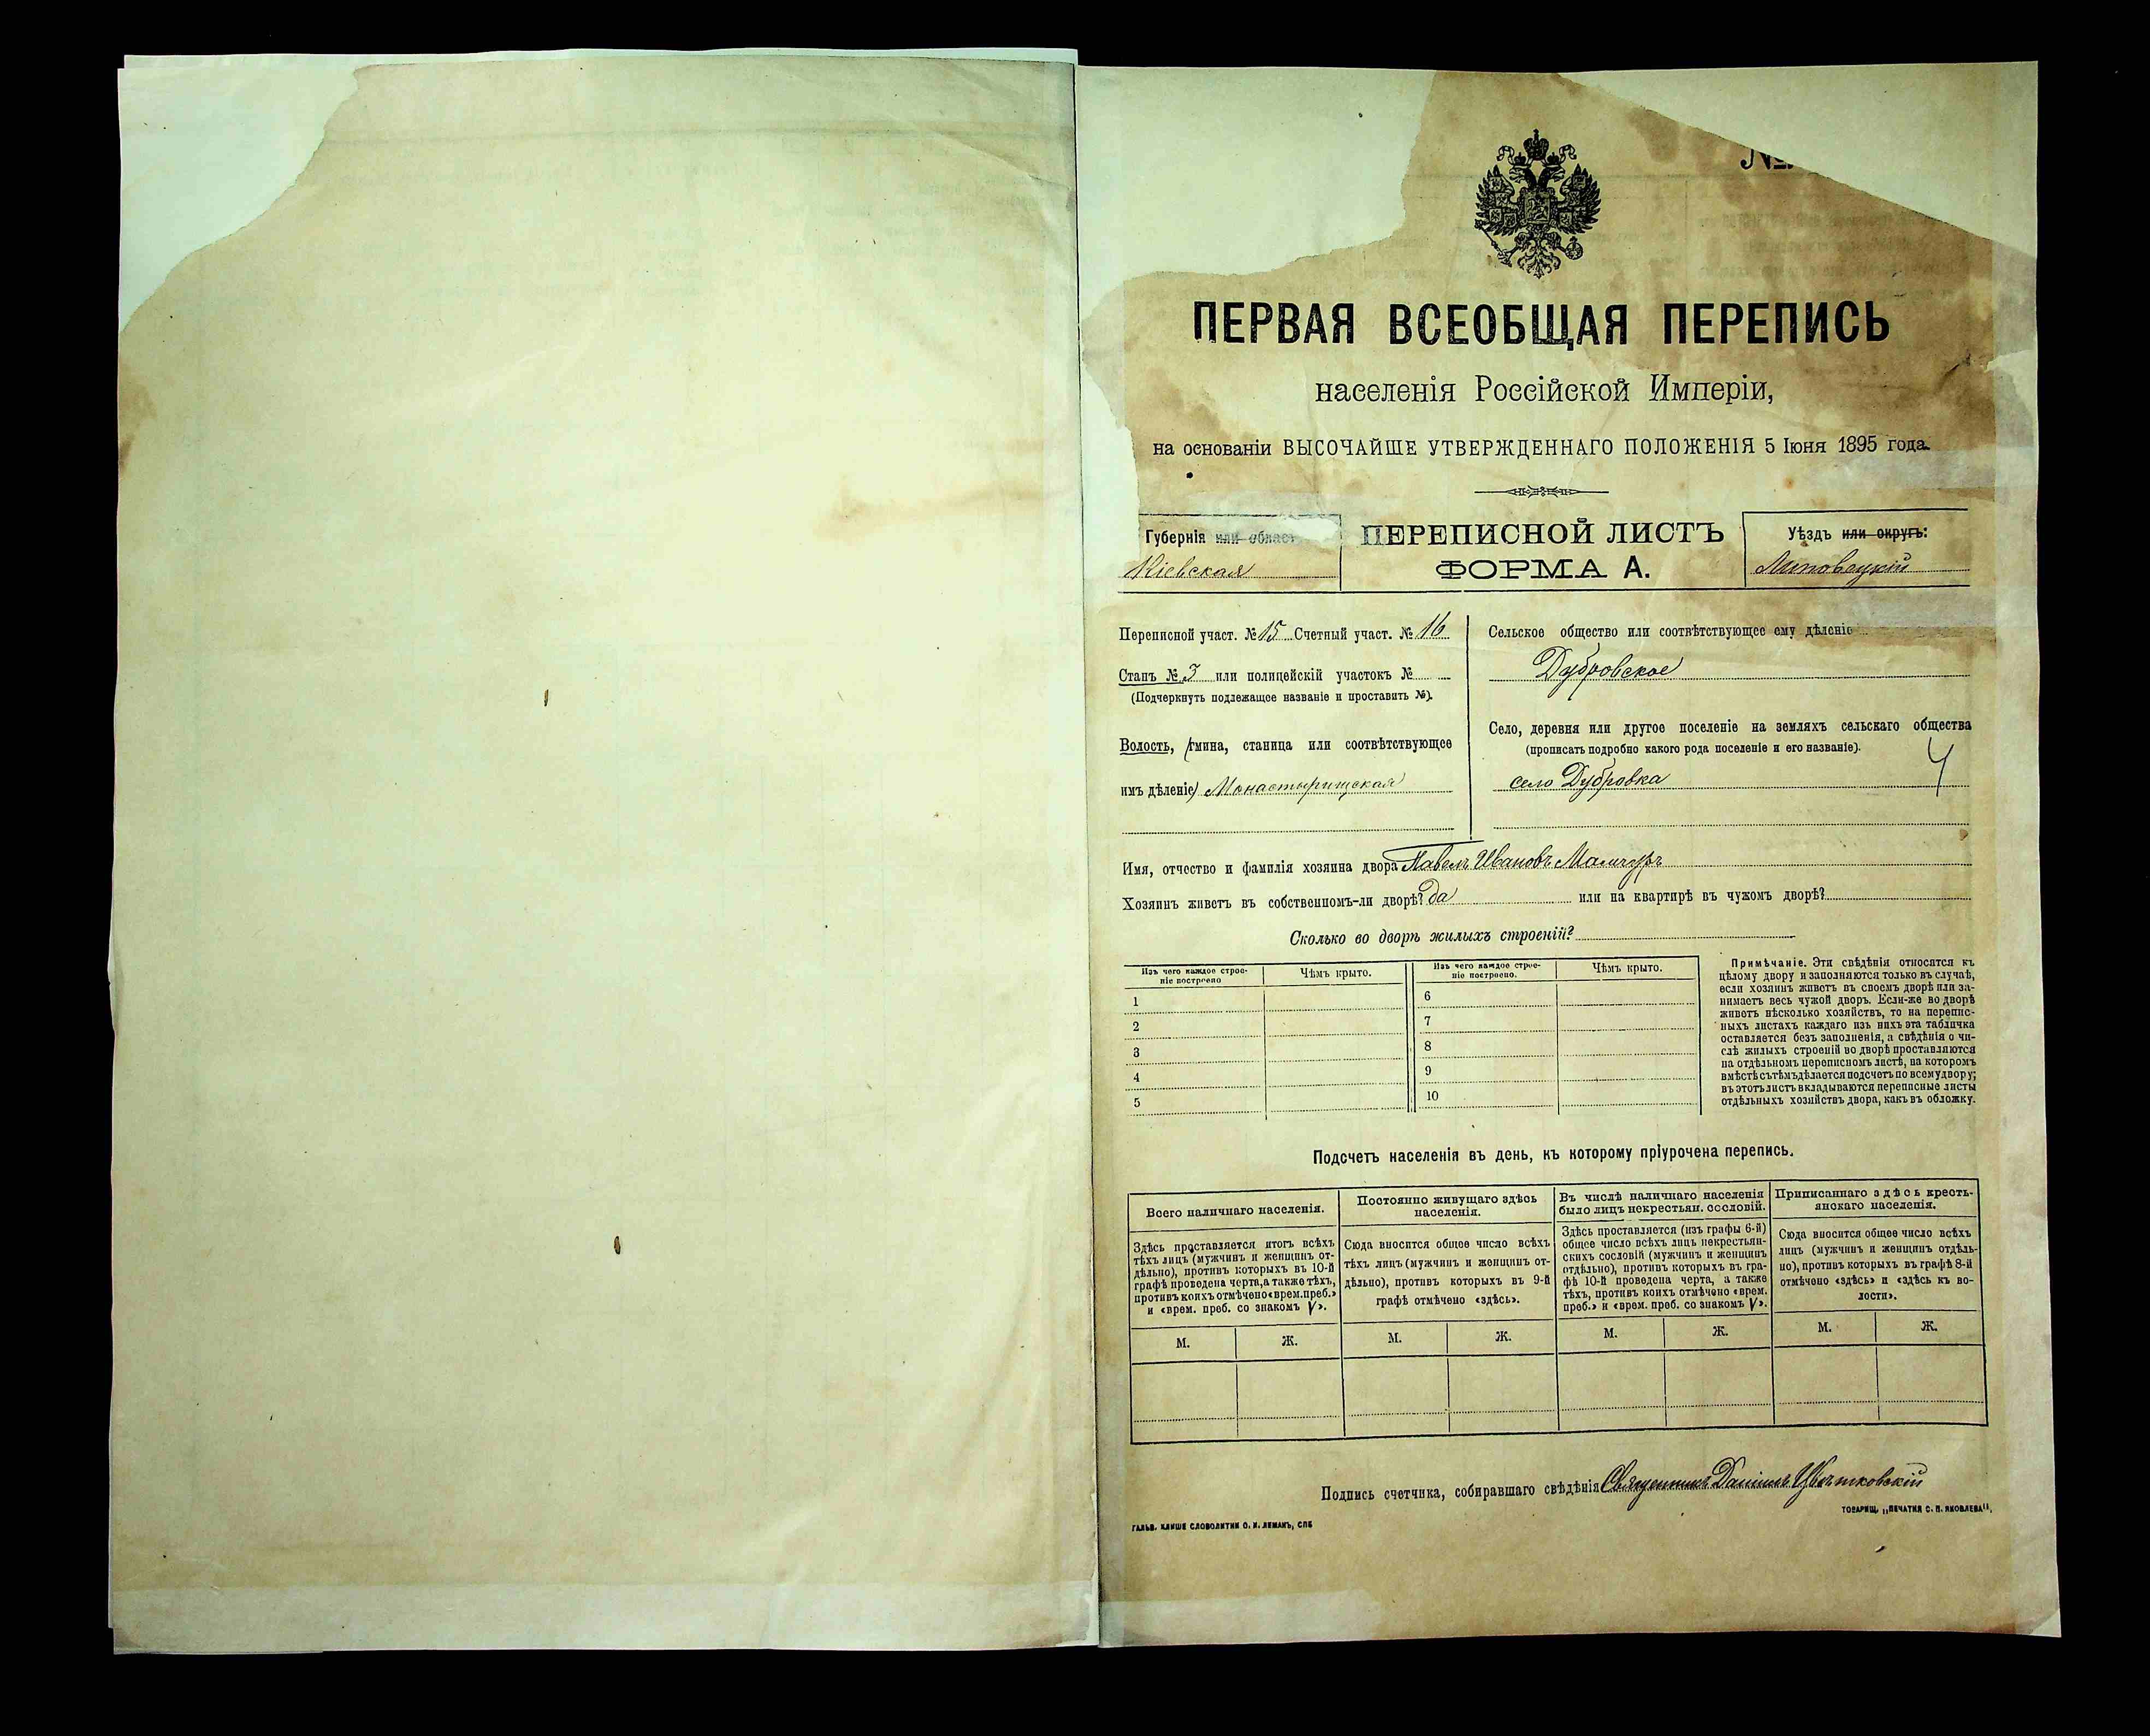 №
ПЕРВАЯ ВСЕОБЩАЯ ПЕРЕПИСЬ
населенія Россійской Имперіи,
на основаніи ВЫСОЧАЙШЕ УТВЕРЖДЕННАГО ПОЛОЖЕНІЯ 5 Іюня 1895 года.
Губернія или област
Кіевская
ПЕРЕПИСНОЙ ЛИСТЪ
ФОРМА А.
Уѣздъ или округъ:
Липовецкій
Переписной участ. № 15 Счетный участ. № 16
Станъ № 3 или полицейскій участокъ №
(Подчеркнуть подлежащее названіе и проставить №).
Волость, (гмина, станица или соотвѣтствующее
имъ дѣленіе) Монастырищская
Сельское общество или соотвѣтствующее ему дѣленіе
Дубровское
Село, деревня или другое поселеніе на земляхъ сельскаго общества
(прописать подробно какого рода поселеніе и его названіе).
село Дубровка
4
Имя, отчество и фамилія хозяина двора Павелъ Ивановъ Мамчуръ
Хозяинъ живетъ въ собственномъ-ли дворѣ? да или на квартирѣ въ чужомъ дворѣ?
Сколько во дворѣ жилыхъ строеній?
Изъ чего каждое строе-
ніе построено
Чѣмъ крыто.
Изъ чего каждое строе-
ніе построено.
Чѣмъ крыто.
1
2
3
4
5
6
7
8
9
10
Примѣчаніе. Эти свѣдѣнія относятся къ
цѣлому двору и заполняются только въ случаѣ,
если хозяинъ живетъ въ своемъ дворѣ или за-
нимаетъ весь чужой дворъ. Если-же во дворѣ
живетъ нѣсколько хозяйствъ, то на перепис-
ныхъ листахъ каждаго изъ нихъ эта табличка
оставляется безъ заполненія, а свѣдѣнія о чи-
слѣ жилыхъ строеній во дворѣ проставляются
на отдѣльномъ переписномъ листѣ, на которомъ
вмѣстѣ съ тѣмъ дѣлается подсчетъ по всему двору;
въ этотъ листъ вкладываются переписные листы
отдѣльныхъ хозяйствъ двора, какъ въ обложку.
Подсчетъ населенія въ день, къ которому пріурочена перепись.
Всего наличнаго населенія.
Здѣсь проставляется итогъ всѣхъ
тѣхъ лицъ (мужчинъ и женщинъ от-
дѣльно), противъ которыхъ въ 10-й
графѣ проведена черта, а также тѣхъ,
противъ коихъ отмѣчено «врем. преб.»
и «врем. преб. со знакомъ V».
М.
Ж.
Постоянно живущаго здѣсь
населенія.
Сюда вносится общее число всѣхъ
тѣхъ лицъ (мужчинъ и женщинъ от-
дѣльно), противъ которыхъ въ 9-й
графѣ отмѣчено «здѣсь».
М.
Ж.
Въ числѣ наличнаго населенія
было лицъ некрестьян. сословій.
Здѣсь проставляется (изъ графы 6-й)
общее число всѣхъ лицъ некрестьян-
скихъ сословій (мужчинъ и женщинъ
отдѣльно), противъ которыхъ въ гра-
фѣ 10-й проведена черта, а также
тѣхъ, противъ коихъ отмѣчено «врем.
преб.» и «врем. преб. со знакомъ V».
М.
Ж.
Приписаннаго здѣсь кресть-
янскаго населенія.
Сюда вносится общее число всѣхъ
лицъ (мужчинъ и женщинъ отдѣль-
но), противъ которыхъ въ графѣ 8-й
отмѣчено «здѣсь» и «здѣсь къ во-
лости».
М.
Ж.
Подпись счетчика, собиравшаго свѣдѣнія Священникъ Даніилъ Цвѣтковскій
ГАЛЬВ. КЛИШЕ СЛОВОЛИТНИ О. И. ЛЕМАНЪ, СПБ
ТОВАРИЩ. „ПЕЧАТНЯ С. П. ЯКОВЛЕВА“,